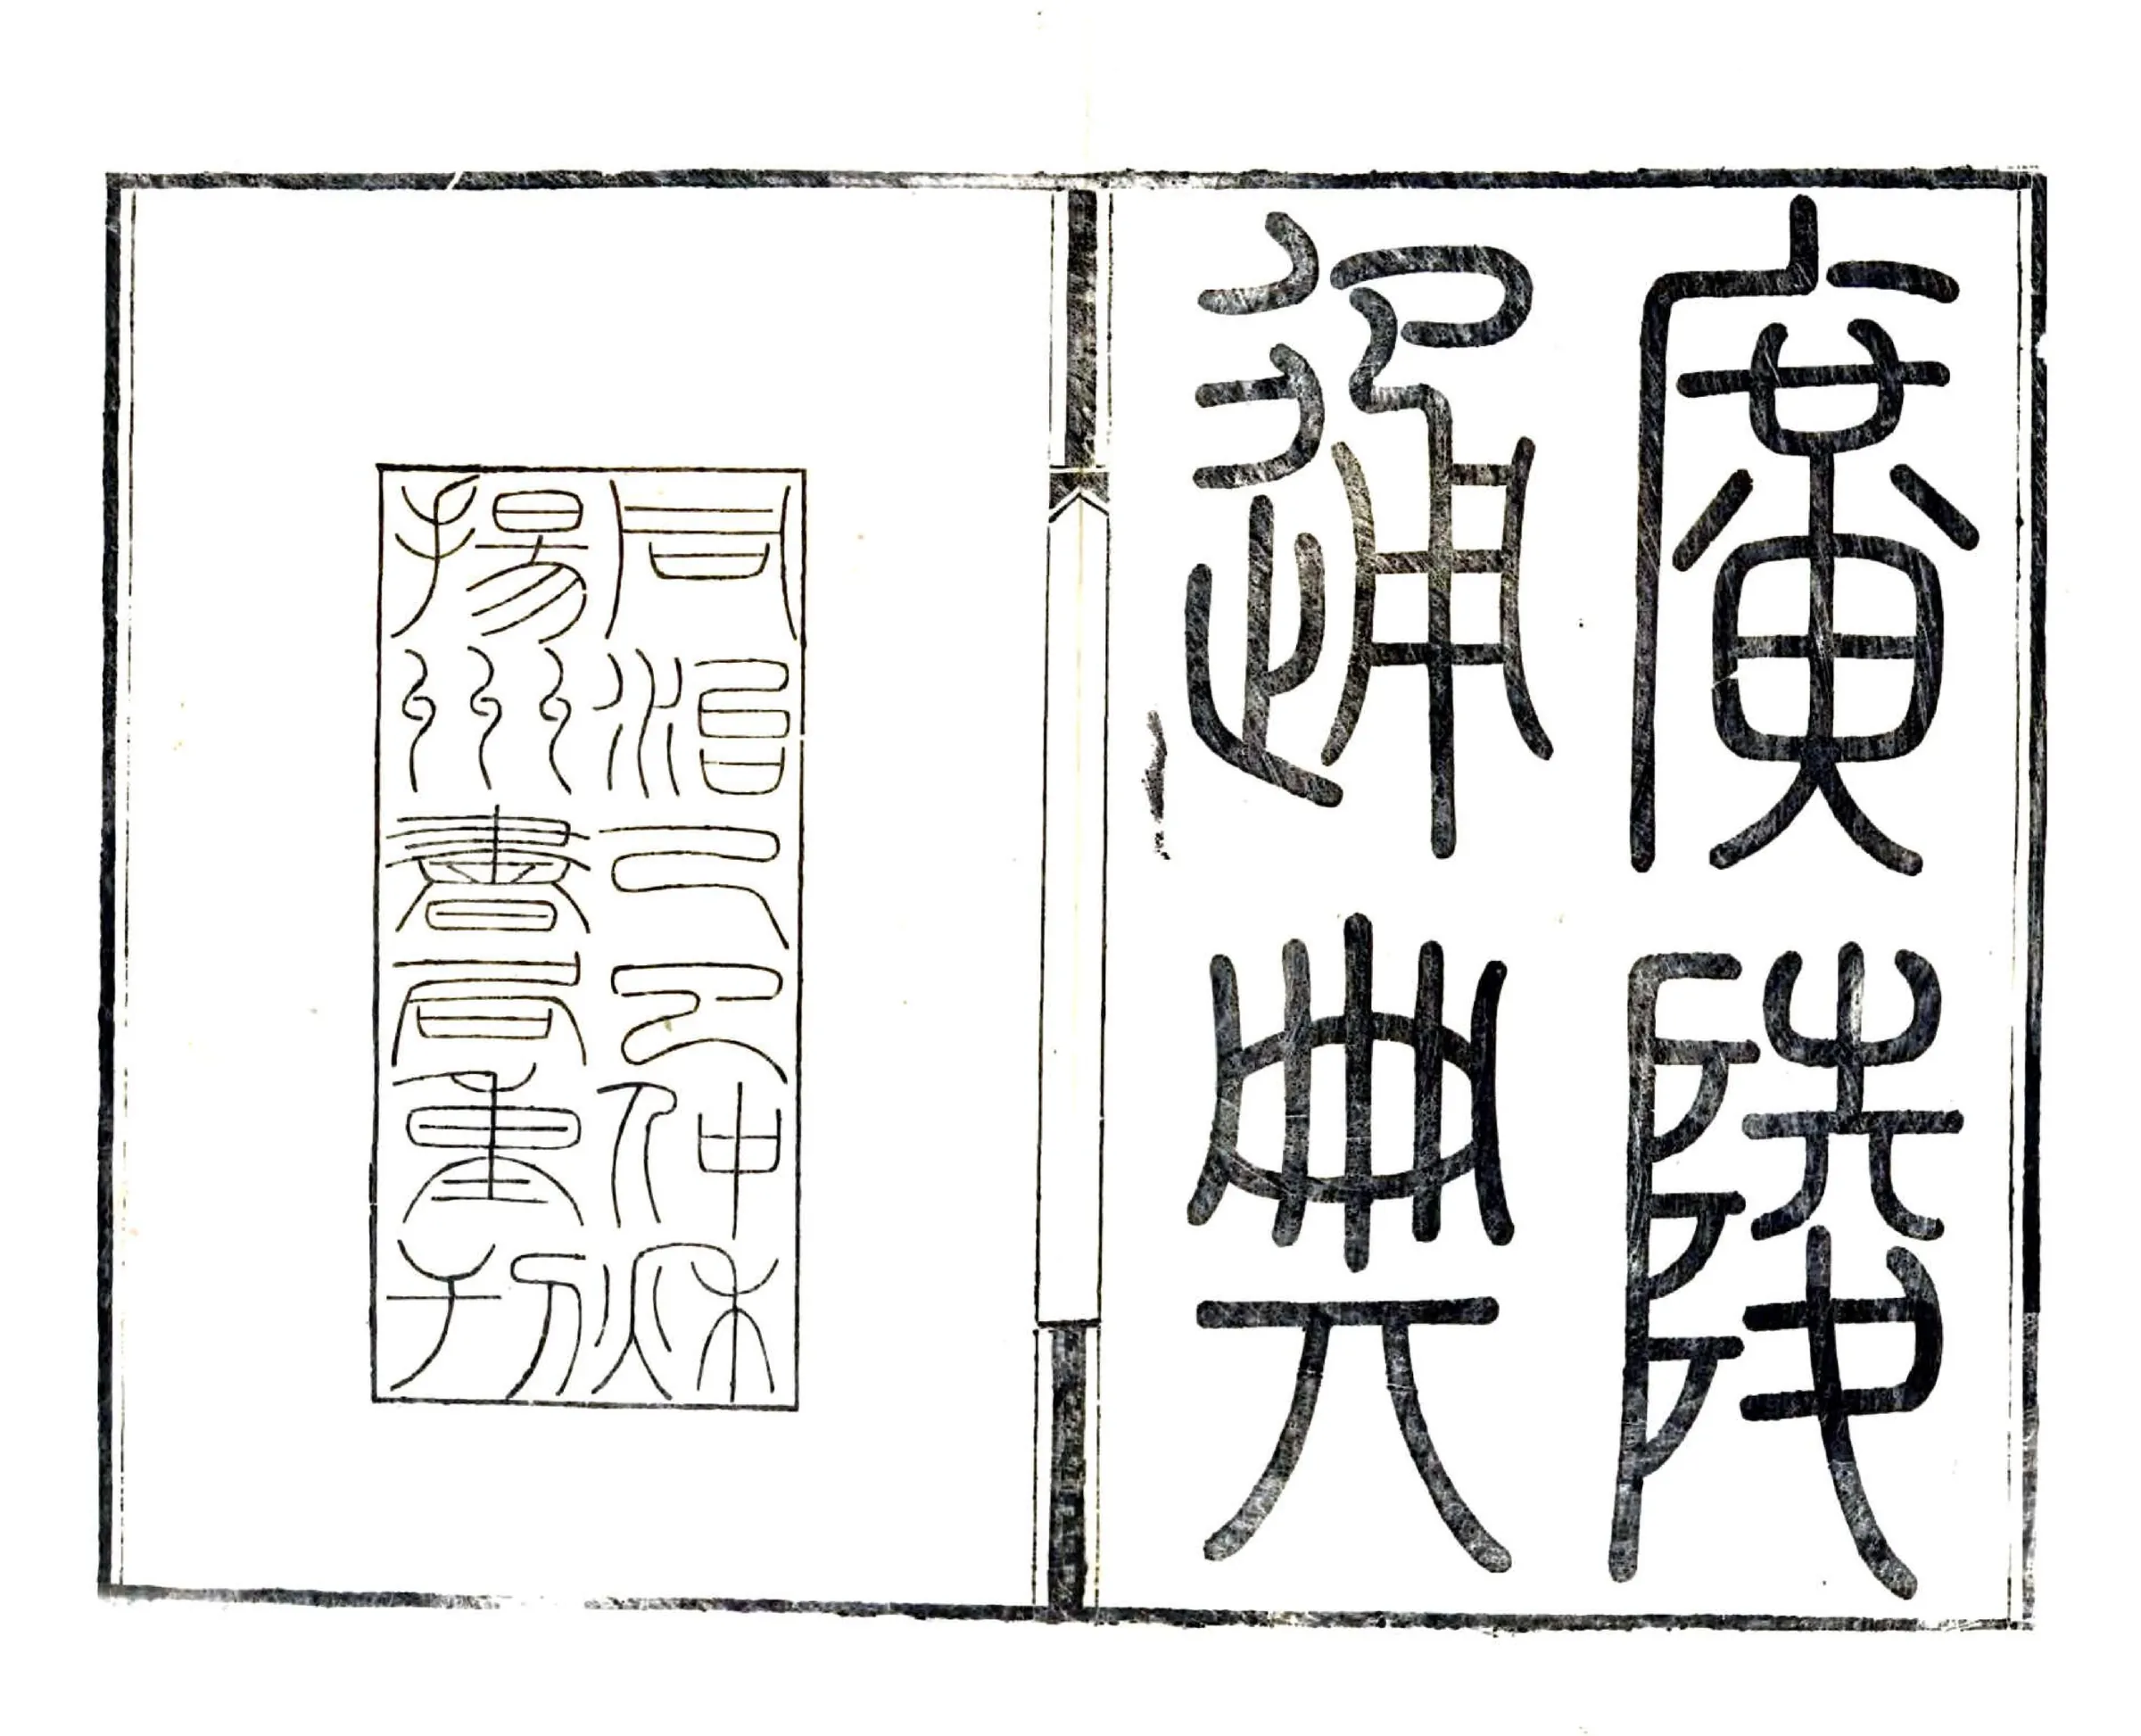 廣陵
通典
同治己巳仲秋
揚州書局重刊